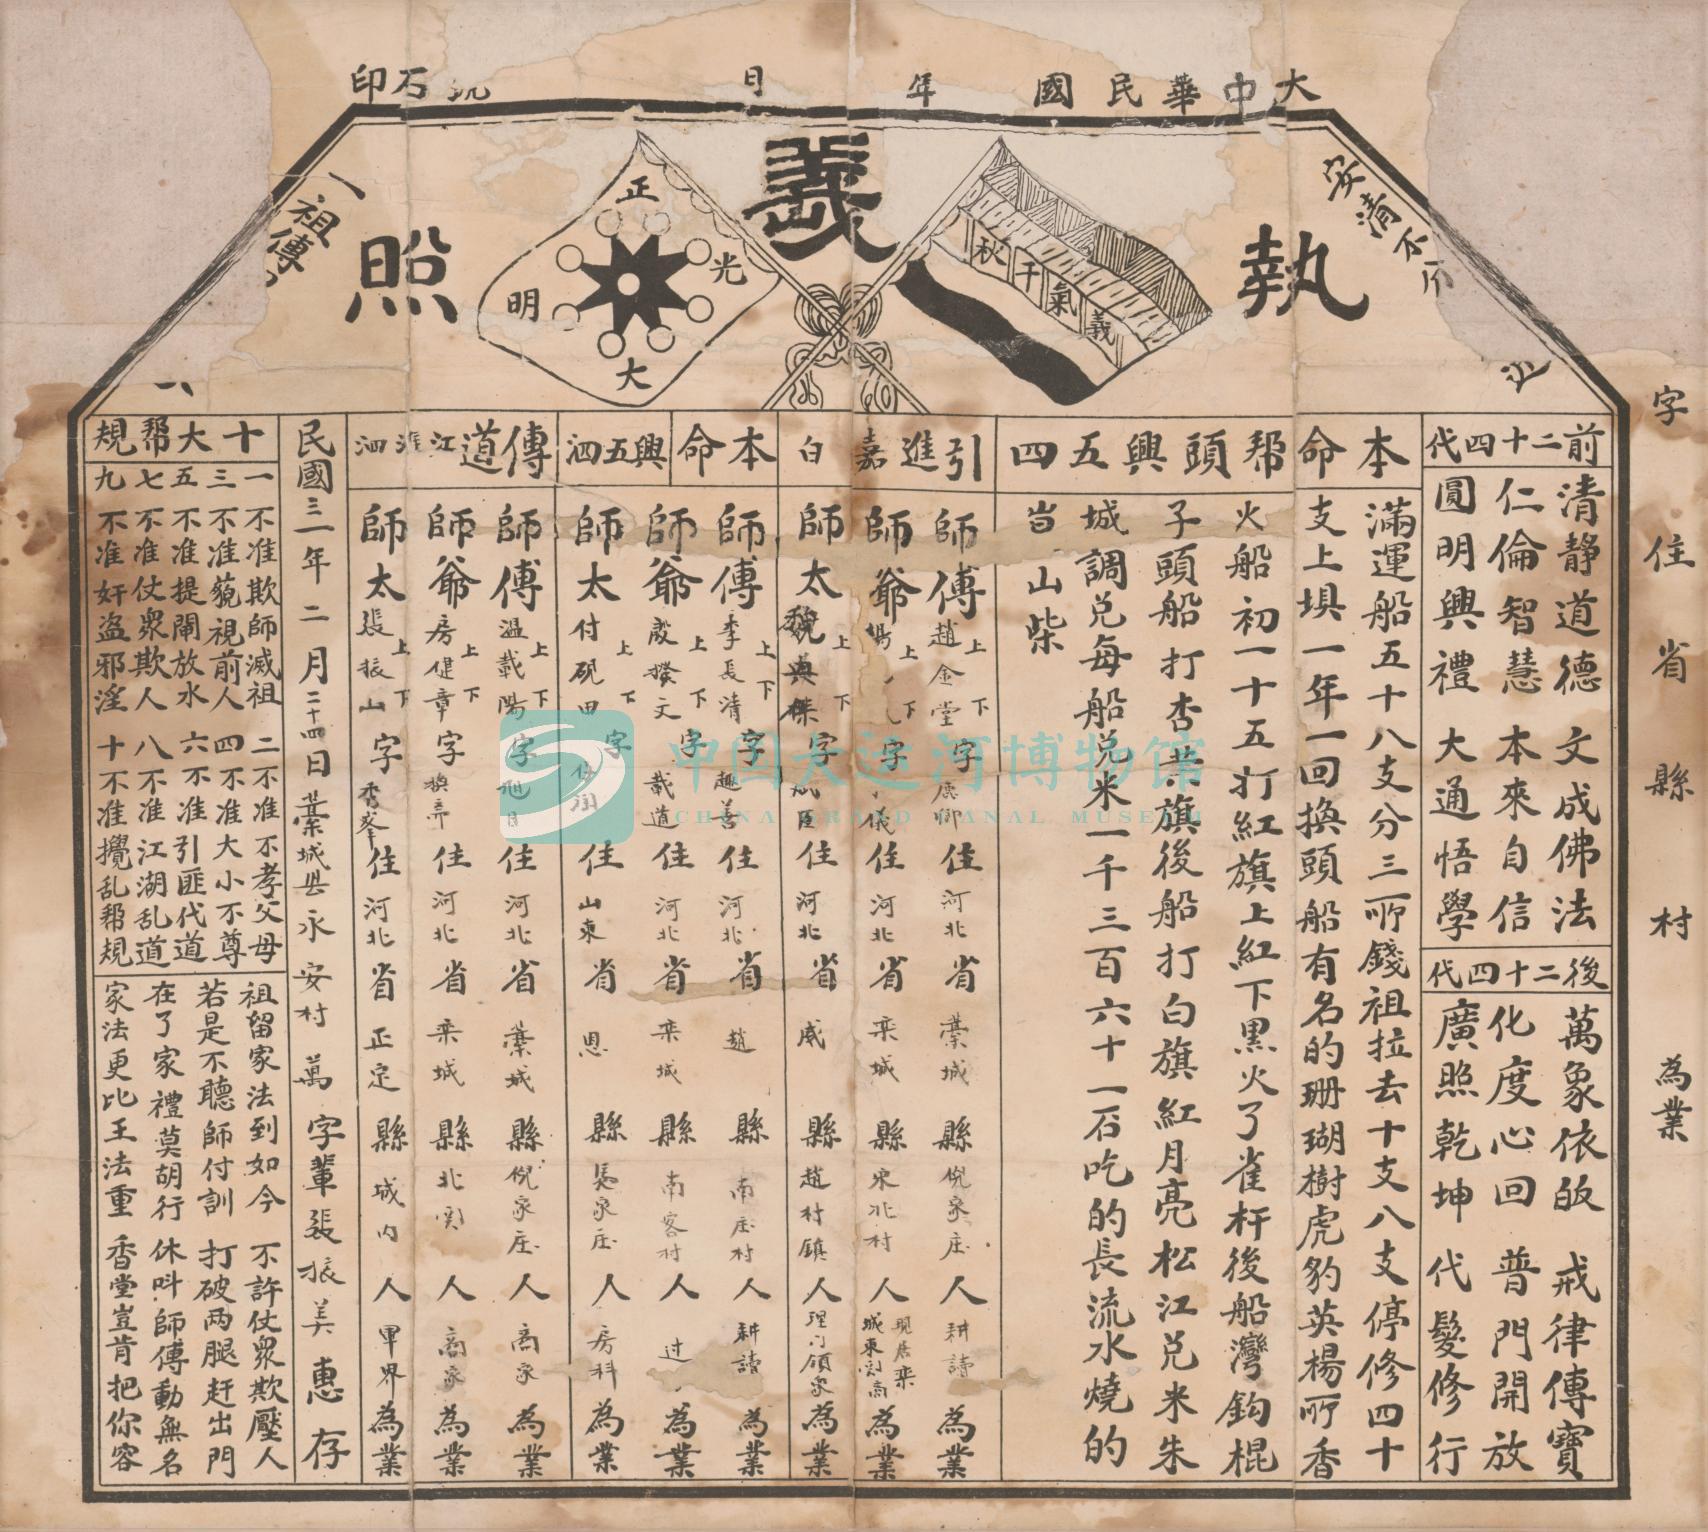 大中華民國 年 日 石印
執義照
安清不分
祖傳
義氣千秋
正大光明
字 住 省 縣 村 為業
前二十四代
清靜道德 文成佛法
仁倫智慧 本來自信
圓明興禮 大通悟學
後二十四代
萬象依皈 戒律傳寶
化度心回 普門開放
廣照乾坤 代髮修行
本命帮頭興五四
滿運船五十八支分三所錢祖拉去十支八支停修四十
支上垻一年一回換頭船有名的珊瑚樹虎豹英楊所香
火船初一十五打紅旗上紅下黑火了雀杆後船灣鈎棍
子頭船打杏黃旗後船打白旗紅月亮松江兑米朱
城調兑每船兑米一千三百六十一石吃的長流水燒的
岩山柴
引進嘉白
師傅趙金堂上下字庚卿住河北省藁城縣倪家庄人耕讀為業
師爺楊上下字儀住河北省栾城縣宋北村人現居栾城東關商為業
師太魏典傑上下字斌臣住河北省威縣趙村鎮人理门領家為業
本命興五泗
師傅季長清上下字趣善住河北省趙縣南庄村人耕讀為業
師爺殿撥文上下字載道住河北省栾城縣南客村人过為業
師太付硯田上下字住山東省恩縣吳家庄人房科為業
傳道江淮泗
師傅温載陽上下字旭日住河北省藁城縣倪家庄人商家為業
師爺房健章上下字換弄住河北省栾城縣北関人商家為業
師太張振山上下字秀峯住河北省正定縣城内人軍界為業
民國三一年二月二十四日藁城县永安村萬字輩張振美惠存
十大帮規
一不准欺師滅祖 二不准不孝父母
三不准藐視前人 四不准大小不尊
五不准提閘放水 六不准引匪代道
七不准仗衆欺人 八不准江湖乱道
九不准奸盗邪淫 十不准攪乱帮規
祖留家法到如今 不許仗衆欺壓人
若是不聽師付訓 打破两腿赶出門
在了家禮莫胡行 休呌師傅動無名
家法更比王法重 香堂豈肯把你容
中国大运河博物馆
CHINA GRAND CANAL MUSEUM